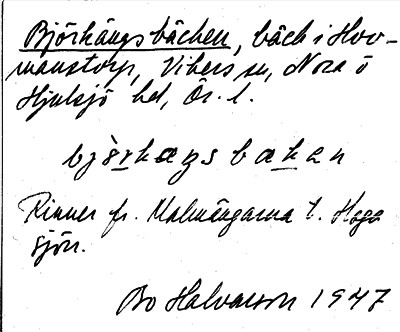 Björhängsbäcken, bäck i Hov-
manstorp, Vibers sn, Nora o
Hjulsjö bd, Ör. l.
bjö̀rhaŋsbakan
Rinner fr. Malmängarna t. Haga
sjön.
Bo Halvarson 1947